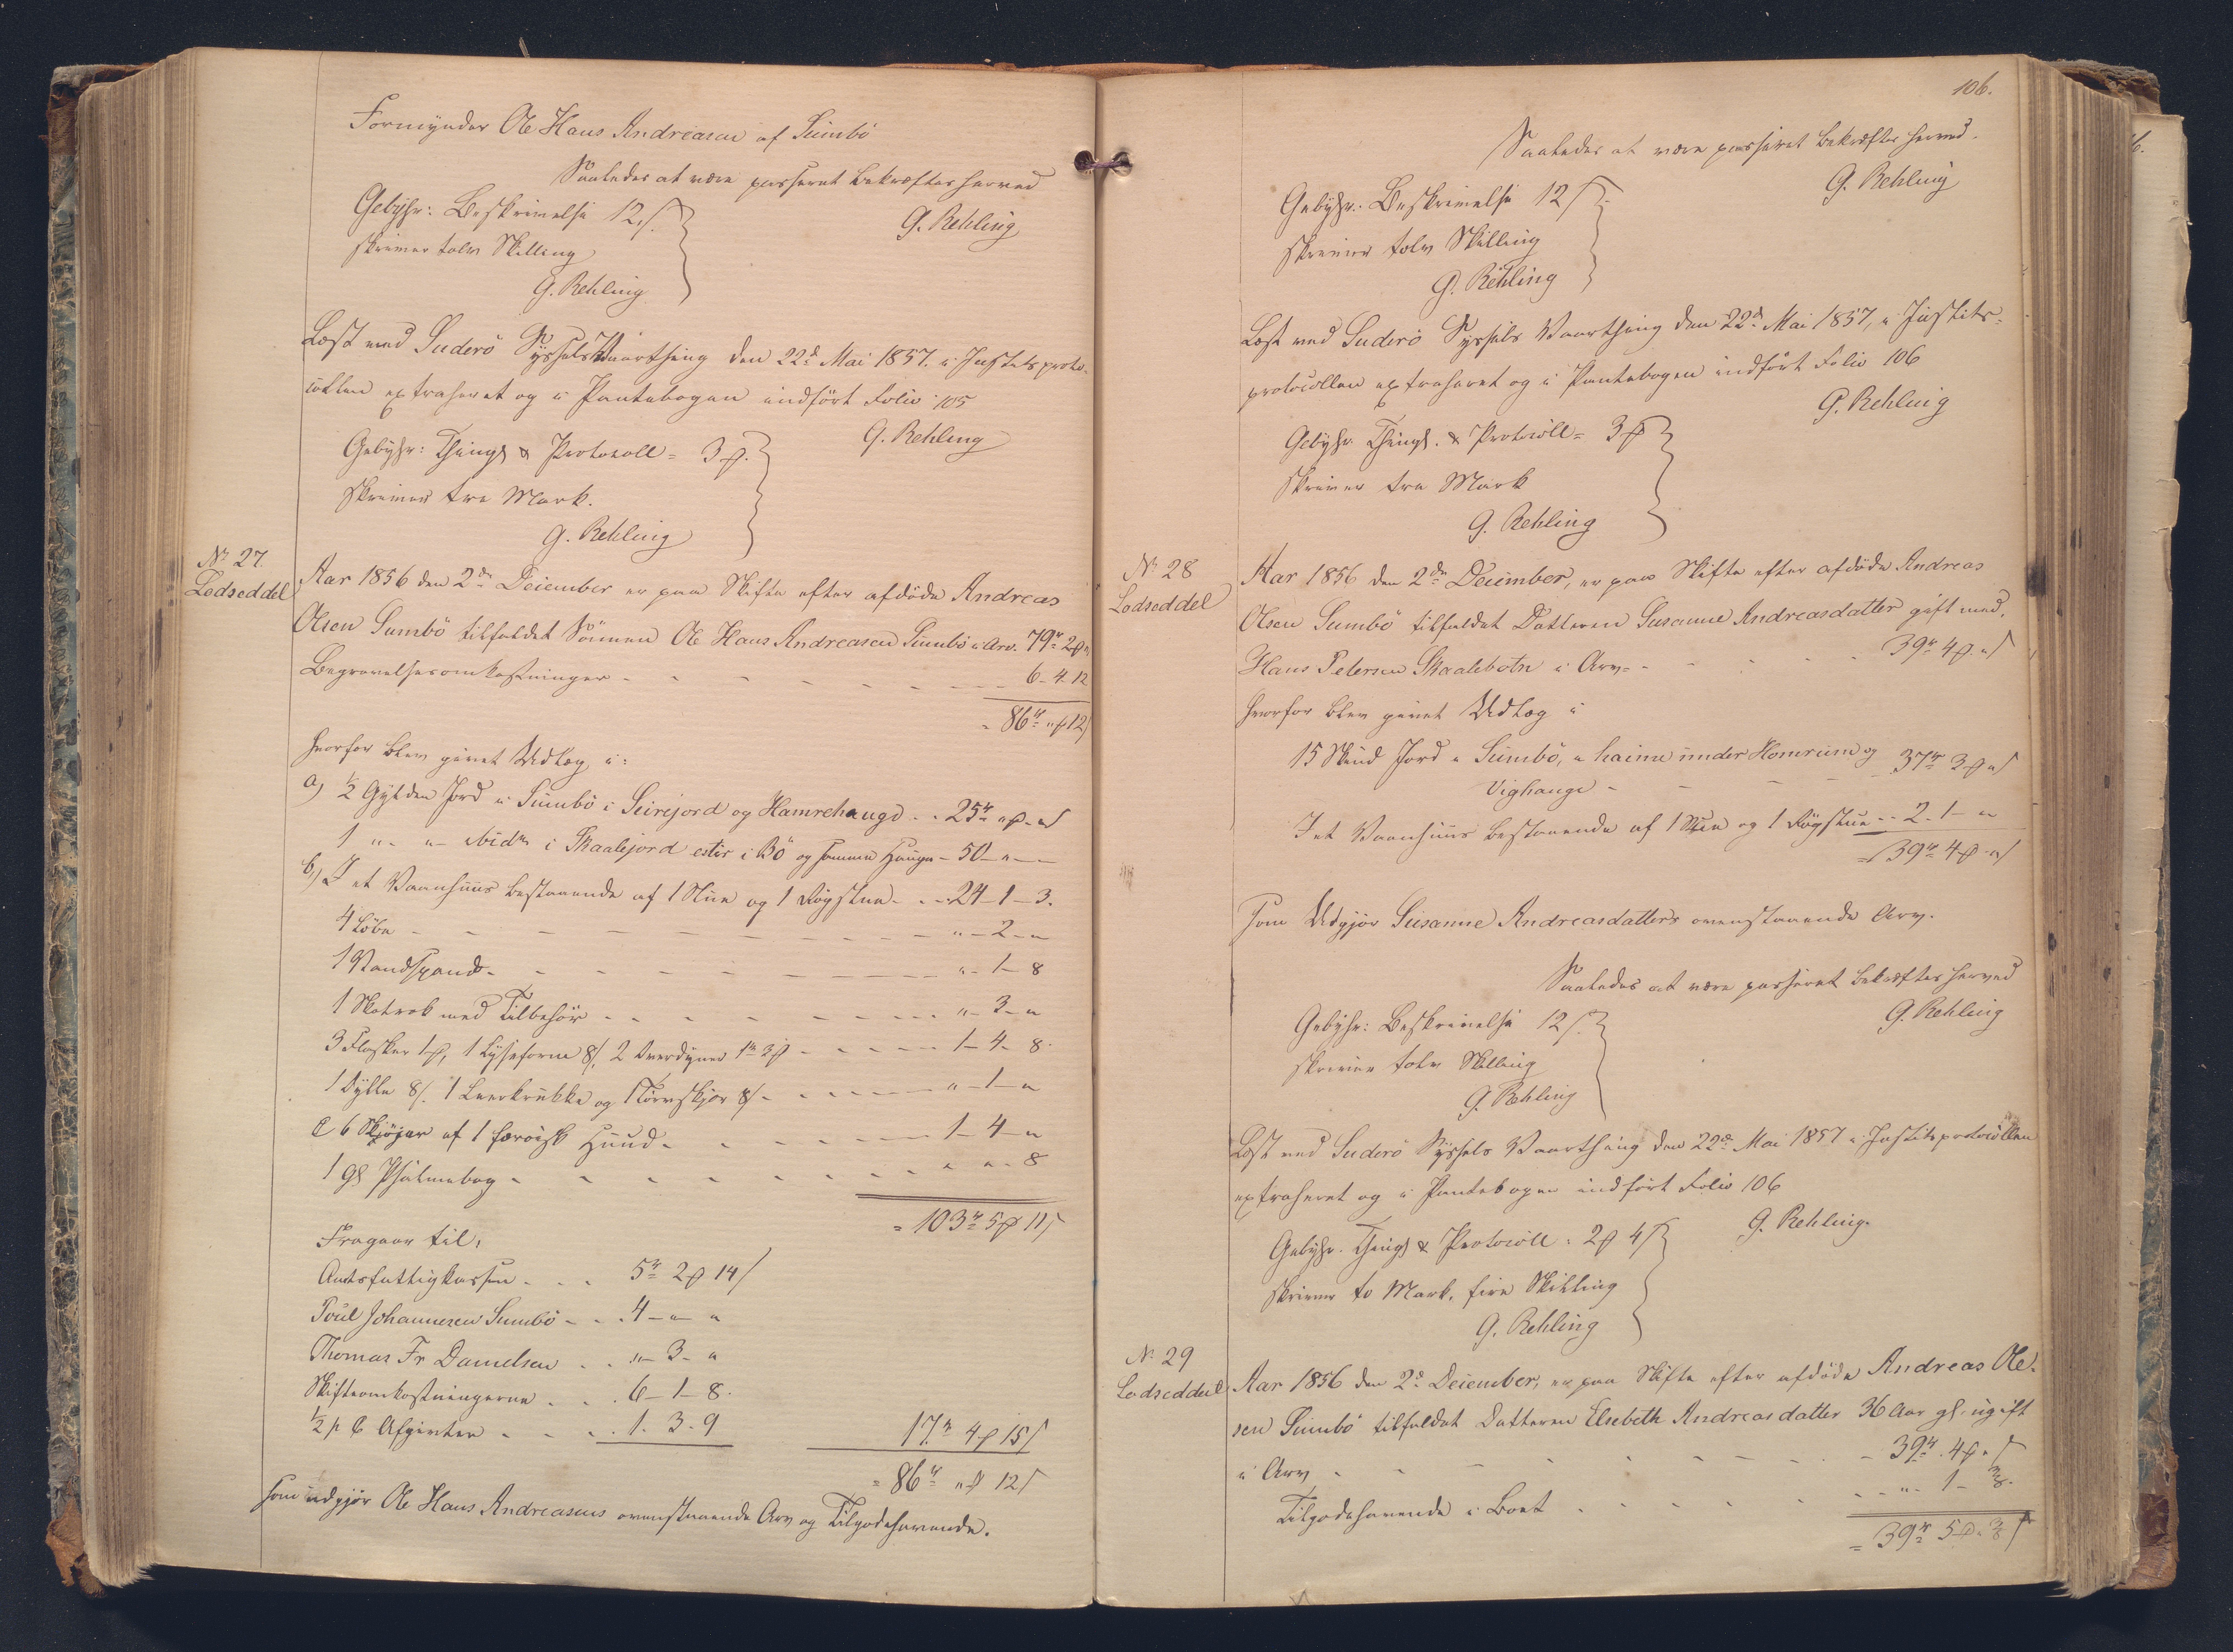 Formynder Ole Hans Andreasen af Sumbö
Saaledes at være passeret bekræftes herved
G. Rehling
Gebyhr: Beskrivelse 12 s.
skriver tolv Skilling
G. Rehling
Læst ved Suderö Syssels Vaarthing den 22d Mai 1857. i Justitsproto-
collen extraheret og i Pantebogen indfört Folio 105
G. Rehling
Gebyhr: Thingl & Protocoll = 3 ₰.
skriver tre Mark.
G. Rehling
No 27.
Lodseddel
Aar 1856 den 2de December er paa Skifte efter afdöde Andreas
Olsen Sumbö tilfaldet Sönnen Ole Hans Andreasen Sumbö i Arv. 79r 2₰ "
Begravelsesomkostninger - - - - - 6 - 4 - 12
= 86r " ₰ 12 s
hvorfor blev givet Udlæg i:
a) ½ Gylden Jord i Sumbö i Seirejord og Hamrehauge - - 25r " ₰ - " s
1 " - " - ibidm i Skaalejord ester i Bö og samme Hauge - 50 - " - -
b,) I et Vaanhuus bestaaende af 1 Stue og 1 Rögstue - - - 24 - 1 - 3.
4 Löbe - - - - - " - 2 - "
1 Vandspand - - - - - " - 1 - 8
1 Skotrok med Tilbehör - - - - - " - 3 - "
3 Flasker 1 ₰, 1 Lyseform 8 s, 2 Overdyner 1r 3 ₰ - - - - 1 - 4 - 8.
1 Bylle 8 s. 1 Leerkrukke og 1 Törvskjær 8 s - - - - " - 1 - "
C 6 Skjöjar af 1 færöisk Huud - - - - 1 - 4 - "
1 gl Psalmebog - - - - - " " - 8
= 103r 5 ₰ 11 s
Fragaar til,
Amtsfattigkassen - - - 5r 2 ₰ 14 s
Poul Johannesen Sumbö - - - 4 - " - "
Thomas Fr Danielsen - - " - 3 - "
Skifteomkostningerne - - - 6 - 1 - 8.
½ p C Afgivten - - - - 1. 3. 9
17r 4 ₰ 15 s
= 86r " ₰ 12 s
som udgjör Ole Hans Andreasens ovenstaaende Arv og Tilgodehavende.
106.
Saaledes at være passeret bekræftes herved.
G. Rehling
Gebyhr. Beskrivelse 12 s
skriver tolv Skilling
G. Rehling
Læst ved Suderö Syssels Vaarthing den 22d Mai 1857, i Justits-
protocollen extraheret og i Pantebogen indfört Folio 106
G. Rehling
Gebyhr Thingl. & Protocoll = 3 ₰
skriver tre Mark
G. Rehling
No 28
Lodseddel
Aar 1856 den 2de December, er paa Skifte efter afdöde Andreas
Olsen Sumbö tilfaldet Datteren Susanne Andreasdatter gift med,
Hans Petersen Skaalebotn i Arv - - - - 39r 4 ₰ " s
hvorfor blev givet Udlæg i
15 Skind Jord i Sumbö, i haime under Homrum og
Vighauge - - - - 37r 3 ₰ " s
I et Vaanhuus bestaaende af 1 Stue og 1 Rögstue - - 2 - 1 - "
= 39r 4 ₰ - " s
som Udgjör Susanne Andreasdatters ovenstaaende Arv.
Saaledes at være passeret bekræftes herved
G. Rehling
Gebyhr: Beskrivelse 12 s.
skriver tolv Skilling
G. Rehling
Læst ved Suderö Syssels Vaarthing den 22de Mai 1857 i Justitsprotocollen
extraheret og i Pantebogen indfört Folio 106
G. Rehling.
Gebyhr. Thingl & Protocoll = 2 ₰ 4 s
skriver to Mark, fire Skilling
G. Rehling
No 29
Lodseddel
Aar 1856 den 2d December, er paa Skifte efter afdöde Andreas Ole-
sen Sumbö tilfaldet Datteren Elsebeth Andreasdatter 36 Aar gl. ugift
i Arv - - - - - 39r. 4 ₰ " s
Tilgodehavende i Boet - - - - - " - 1 - ⅜.
= 39r 5 ₰ " ⅜ s